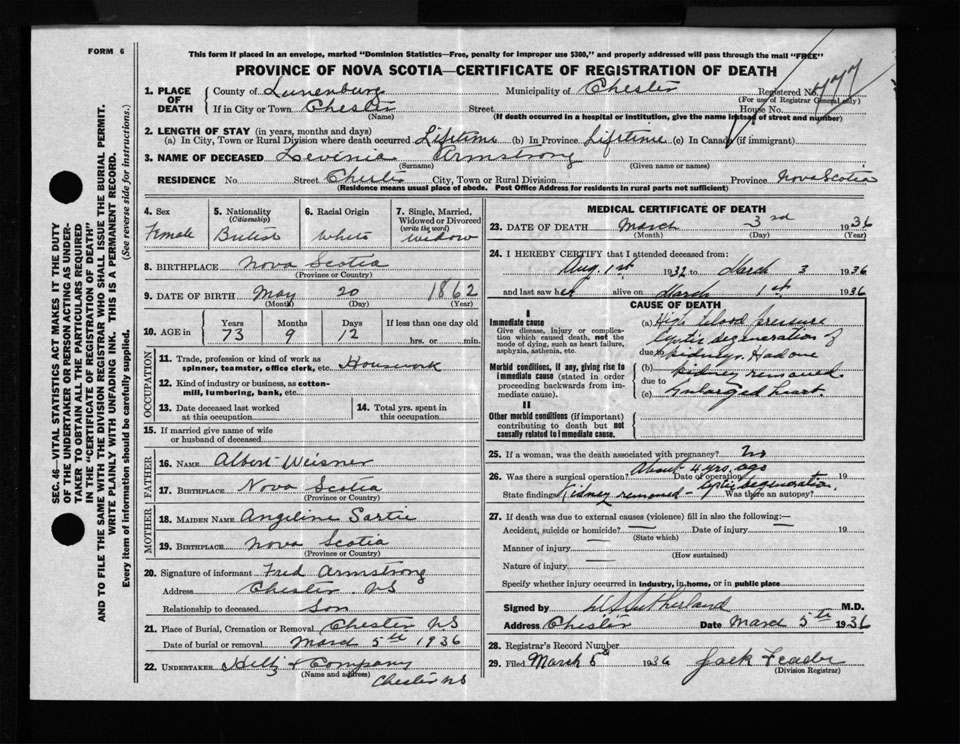 FORM 6
This form if placed in an envelope, marked "Dominion Statistics—Free, penalty for improper use $300," and properly addressed will pass through the mail "FREE"
PROVINCE OF NOVA SCOTIA—CERTIFICATE OF REGISTRATION OF DEATH
1. PLACE OF DEATH County of Lunenburg Municipality of Chester Registered No.
(For use of Registrar General only)
If in City or Town Chester Street House No.
(Name) (If death occurred in a hospital or institution, give the name instead of street and number)
2. LENGTH OF STAY (in years, months and days)
(a) In City, Town or Rural Division where death occurred Lifetime (b) In Province Lifetime (c) In Canada (if immigrant)
3. NAME OF DECEASED Loevinia Armstrong
(Surname) (Given name or names)
RESIDENCE No. Street Chester City, Town or Rural Division Province Nova Scotia
(Residence means usual place of abode. Post Office Address for residents in rural parts not sufficient)
4. Sex 5. Nationality (Citizenship) 6. Racial Origin 7. Single, Married, Widowed or Divorced (write the word)
Female British White Widow
8. BIRTHPLACE Nova Scotia
(Province or Country)
9. DATE OF BIRTH May 20 1862
(Month) (Day) (Year)
10. AGE in Years Months Days If less than one day old
73 9 12 hrs. or min.
OCCUPATION
11. Trade, profession or kind of work as spinner, teamster, office clerk, etc. Housework
12. Kind of industry or business, as cotton-mill, lumbering, bank, etc.
13. Date deceased last worked at this occupation
14. Total yrs. spent in this occupation
15. If married give name of wife or husband of deceased
FATHER
16. NAME Albert Weisner
17. BIRTHPLACE Nova Scotia
(Province or Country)
MOTHER
18. MAIDEN NAME Angeline Sartie
19. BIRTHPLACE Nova Scotia
(Province or Country)
20. Signature of informant Fred Armstrong
Address Chester NS
Relationship to deceased Son
21. Place of Burial, Cremation or Removal Chester NS
Date of burial or removal March 5th 1936
22. UNDERTAKER & Company
(Name and address) Chester NS
MEDICAL CERTIFICATE OF DEATH
23. DATE OF DEATH March 3rd 1936
(Month) (Day) (Year)
24. I HEREBY CERTIFY that I attended deceased from:
Aug. 1st 1932 to March 3 1936
and last saw her alive on March 1st 1936
CAUSE OF DEATH
I
Immediate cause
Give disease, injury or complication which caused death, not the mode of dying, such as heart failure, asphyxia, asthenia, etc.
(a) High blood pressure
cystic degeneration of
due to kidneys. Had one
Morbid conditions, if any, giving rise to immediate cause (stated in order proceeding backwards from immediate cause).
(b) kidney removed.
due to
(c) Enlarged heart.
II
Other morbid conditions (if important) contributing to death but not causally related to immediate cause.
25. If a woman, was the death associated with pregnancy? No
26. Was there a surgical operation? About 4 yrs. ago Date of operation 19
State findings Kidney removed - cystic degeneration. Was there an autopsy?
27. If death was due to external causes (violence) fill in also the following:—
Accident, suicide or homicide? — Date of injury 19
(State which)
Manner of injury —
(How sustained)
Nature of injury —
Specify whether injury occurred in industry, in home, or in public place
Signed by Sutherland M.D.
Address Chester Date March 5th 1936
28. Registrar's Record Number
29. Filed March 5th 1936 Jack
(Division Registrar)
SEC. 46—VITAL STATISTICS ACT MAKES IT THE DUTY
OF THE UNDERTAKER OR PERSON ACTING AS UNDER-
TAKER TO OBTAIN ALL THE PARTICULARS REQUIRED
IN THE "CERTIFICATE OF REGISTRATION OF DEATH"
AND TO FILE THE SAME WITH THE DIVISION REGISTRAR WHO SHALL ISSUE THE BURIAL PERMIT.
WRITE PLAINLY WITH UNFADING INK. THIS IS A PERMANENT RECORD.
Every item of information should be carefully supplied. (See reverse side for instructions.)